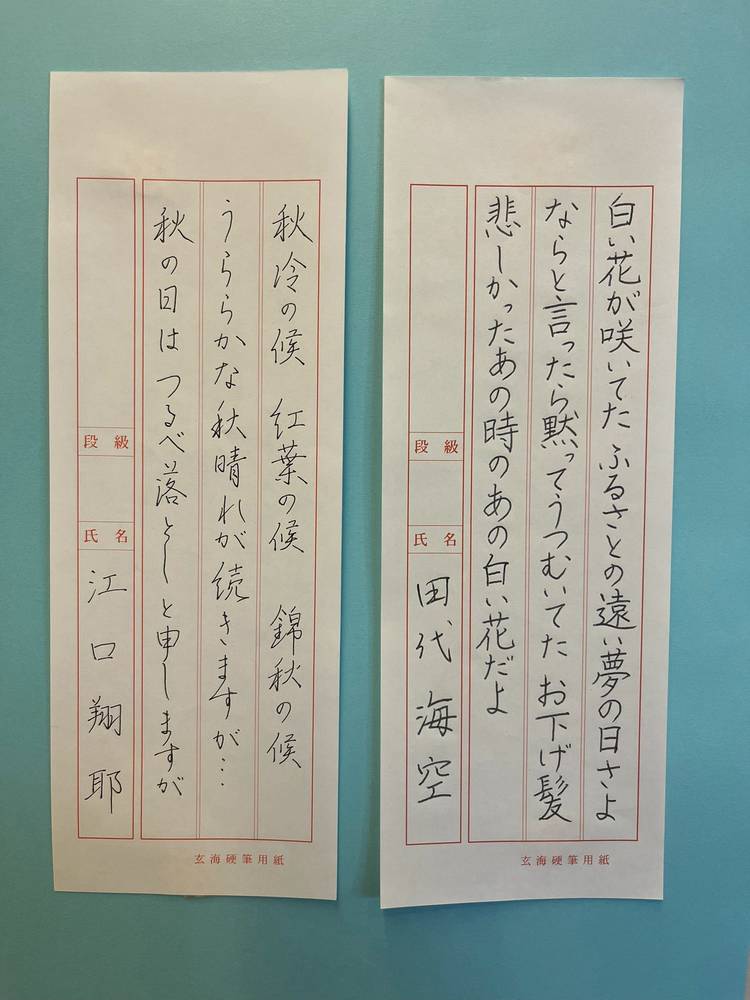 白い花が咲いてた ふるさとの遠い夢の日さよ
ならと言ったら黙ってうつむいてた お下げ髪
悲しかったあの時のあの白い花だよ
段級
氏名
田代海空
玄海硬筆用紙
秋冷の候 紅葉の候 錦秋の候
うららかな秋晴れが続きますが…
秋の日はつるべ落としと申しますが
段級
氏名
江口翔耶
玄海硬筆用紙